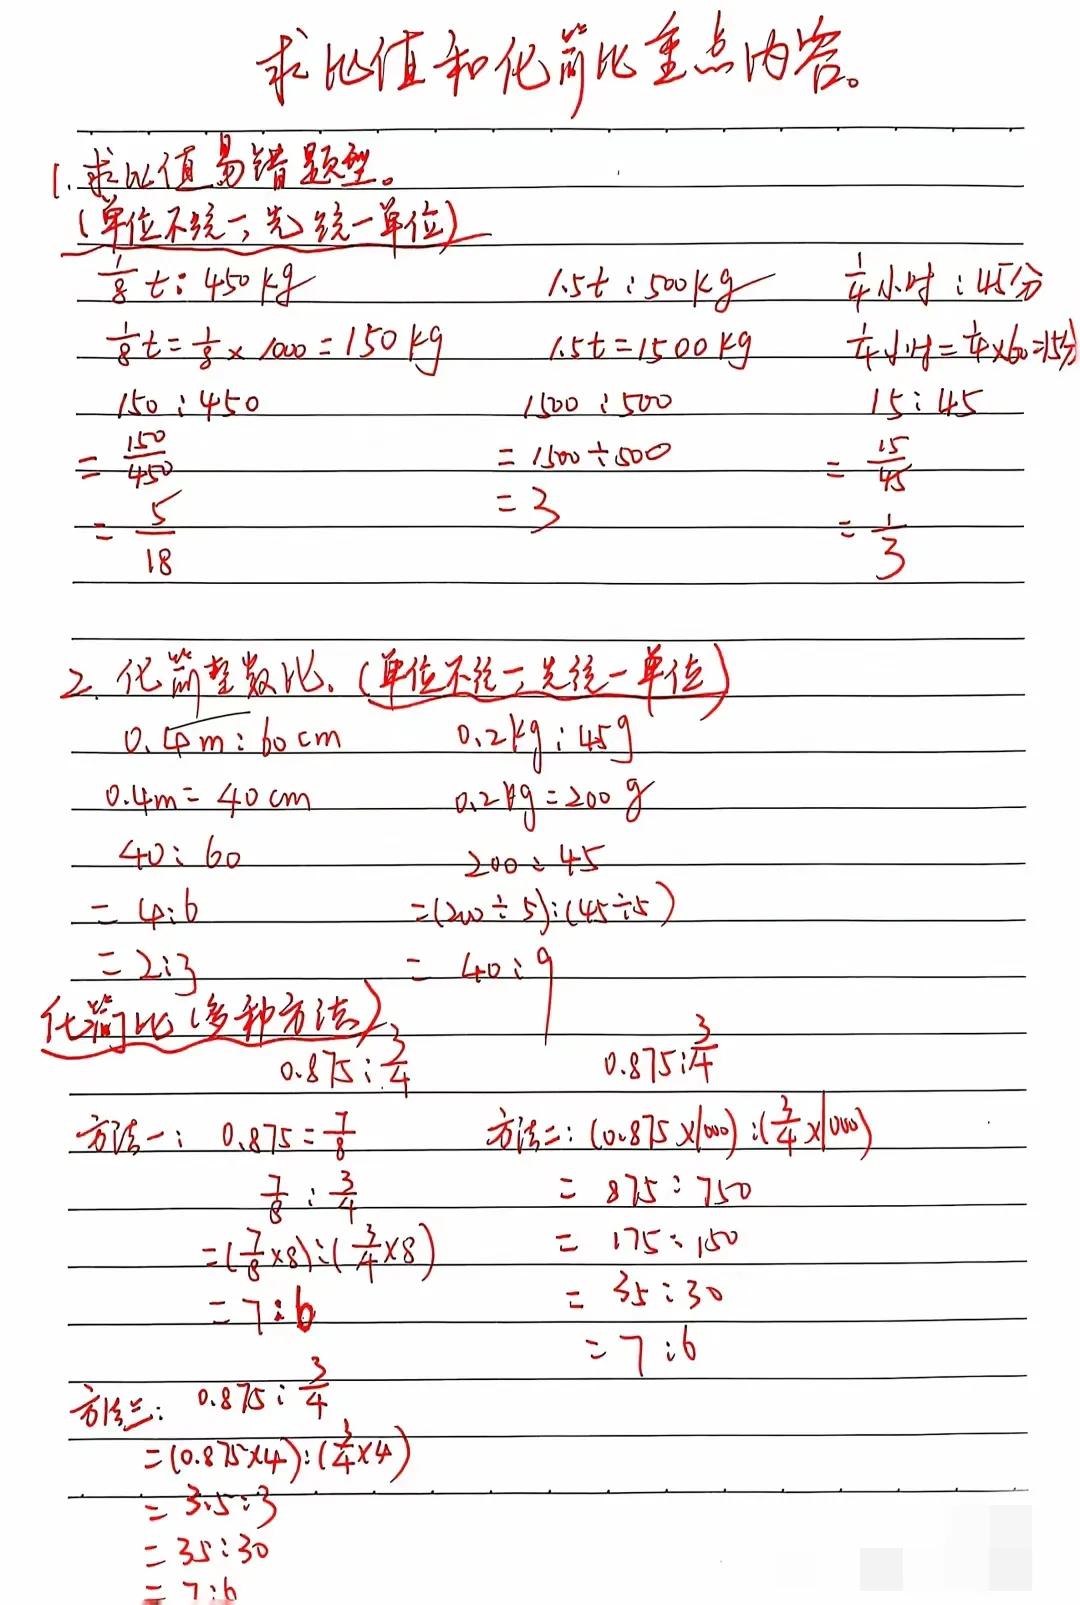 求比值和化简比重点内容。
1.求比值易错题型。
(单位不统一,先统一单位)
1/8 t:450kg 1.5t:500kg 1/4小时:45分
1/8 t=1/8×1000=150kg 1.5t=1500kg 1/4小时=1/4×60=15分
150:450 1500:500 15:45
=150/450 =1500÷500 =15/45
=5/18 =3 =1/3
2.化简整数比.(单位不统一,先统一单位)
0.4m:60cm 0.2kg:45g
0.4m=40cm 0.2kg=200g
40:60 200:45
=4:6 =(200÷5):(45÷5)
=2:3 =40:9
化简比(多种方法)
0.875:3/4 0.875:3/4
方法一: 0.875=7/8 方法二:(0.875×1000):(3/4×1000)
7/8:3/4 =875:750
=(7/8×8):(3/4×8) =175:150
=7:6 =35:30
=7:6
方法三: 0.875:3/4
=(0.875×4):(3/4×4)
=3.5:3
=35:30
=7:6